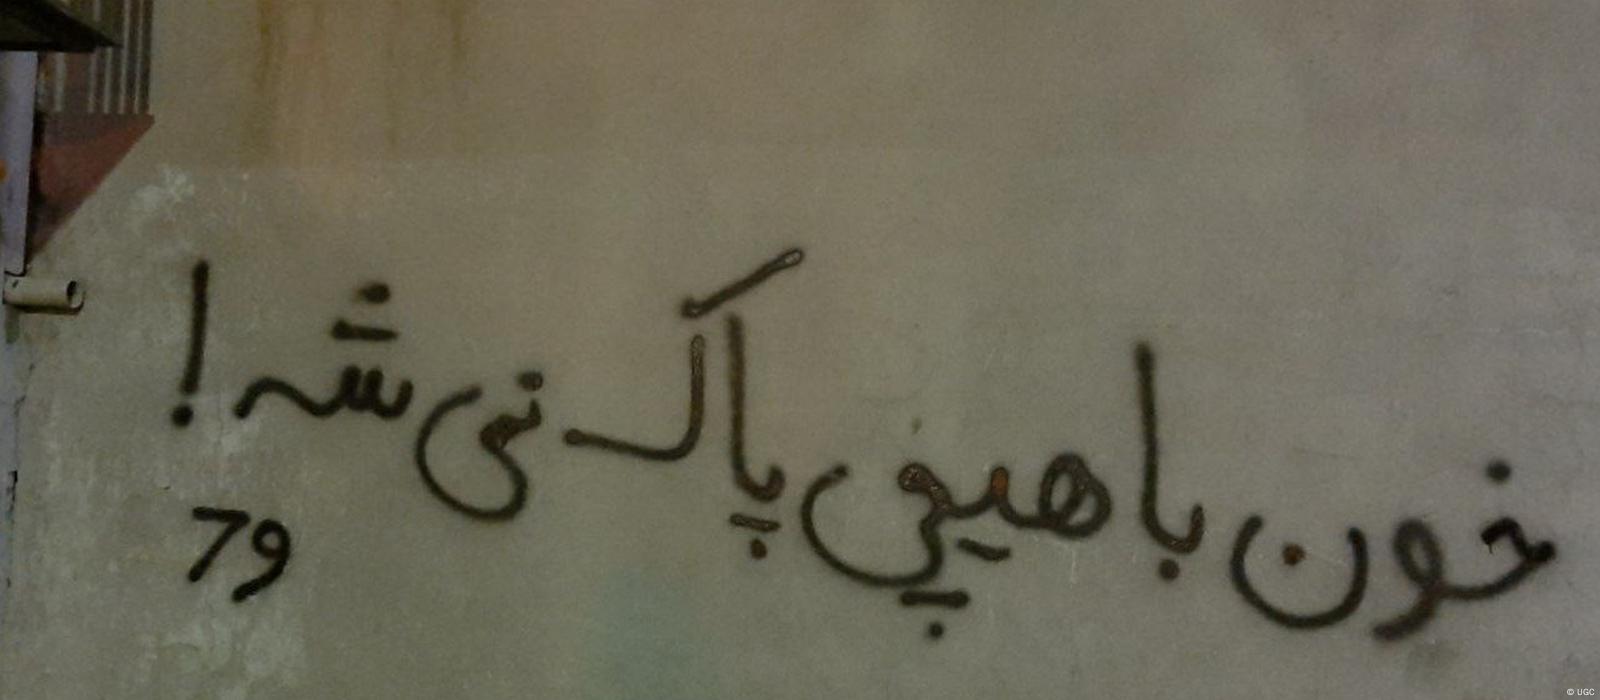 خون با هیچی پاک نمی شه !
79
© UGC